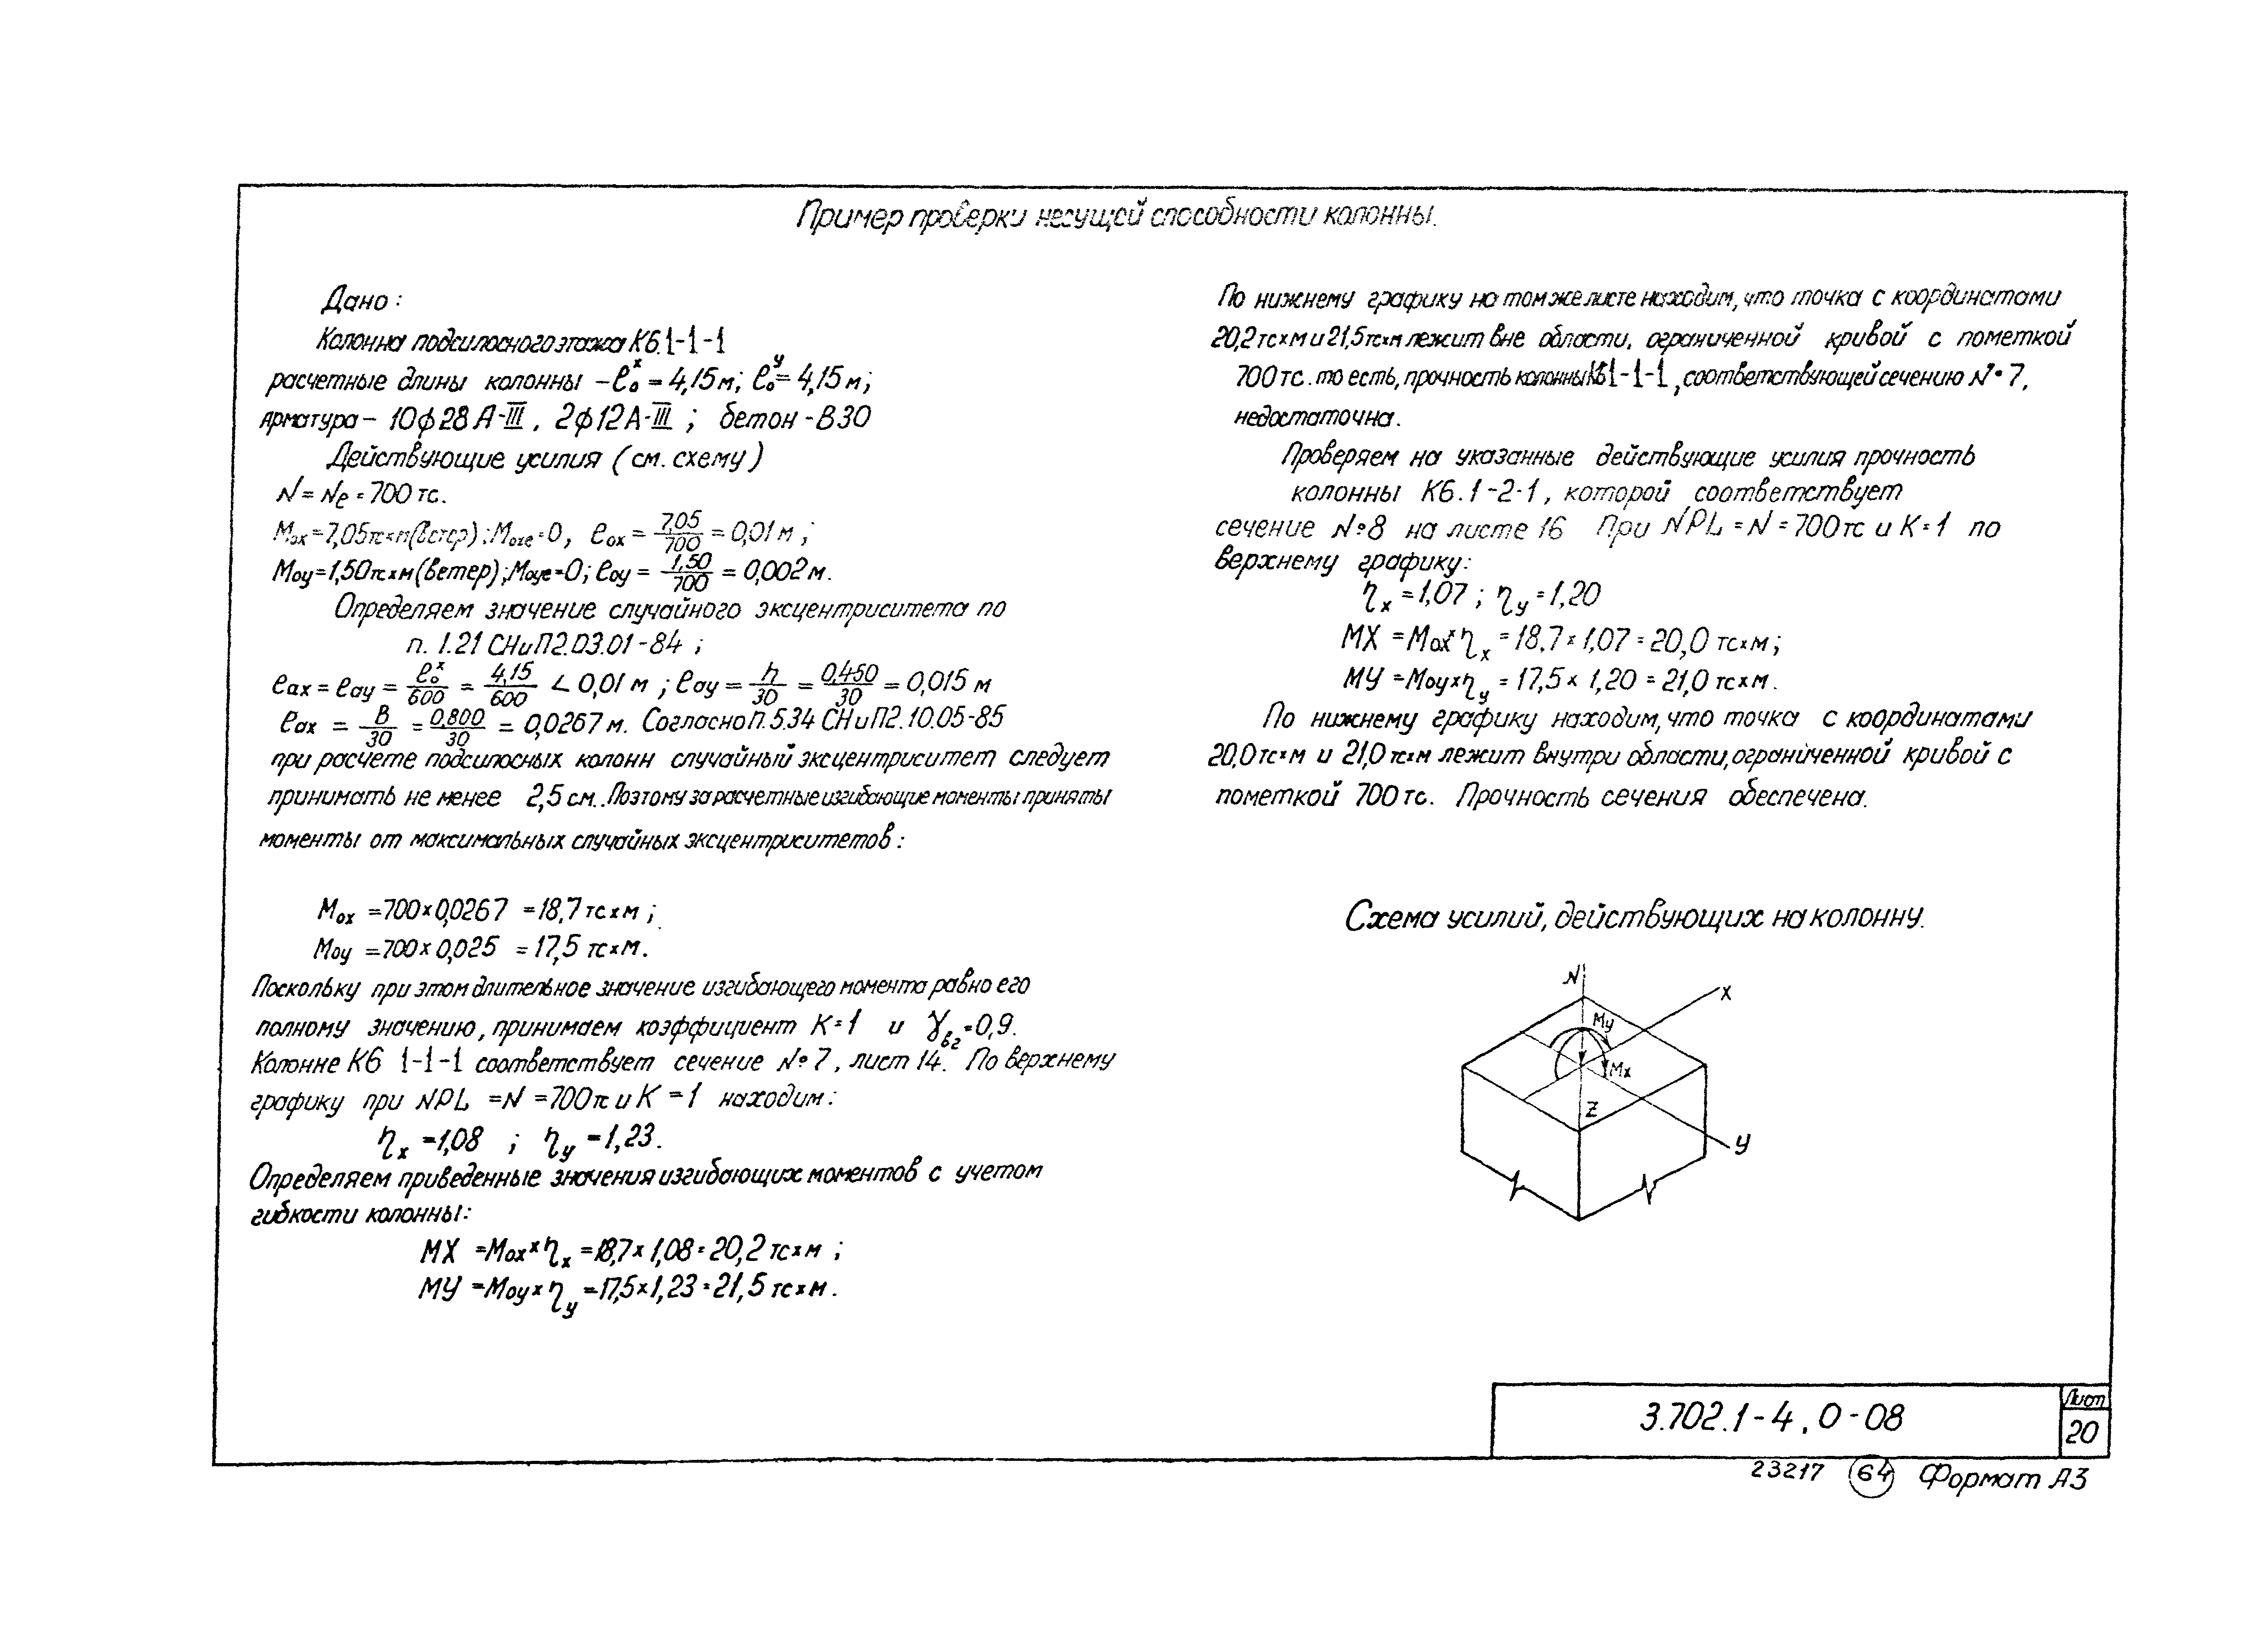 Пример проверки несущей способности колонны.
Дано:
Колонна подсилосного этажа К6.1-1-1
расчетные длины колонны - ℓ₀ˣ = 4,15 м; ℓ₀ʸ = 4,15 м;
арматура - 10ф28 А-III, 2ф12А-III ; бетон - В30
Действующие усилия (см. схему)
N = Nℓ = 700 тс.
Mох = 7,05тс×м(ветер); Mохℓ = 0, ℓох = 7,05/700 = 0,01 м ;
Mоу = 1,50тс×м(ветер); Mоуℓ = 0; ℓоу = 1,50/700 = 0,002 м.
Определяем значение случайного эксцентриситета по
п. 1.21 СНиП2.03.01-84 ;
ℓах = ℓау = ℓ₀ˣ/600 = 4,15/600 < 0,01 м ; ℓау = h/30 = 0,450/30 = 0,015 м
ℓах = В/30 = 0,800/30 = 0,0267 м. Согласно П.5.34 СНиП2.10.05-85
при расчете подсилосных колонн случайный эксцентриситет следует
принимать не менее 2,5 см. Поэтому за расчетные изгибающие моменты приняты
моменты от максимальных случайных эксцентриситетов:
Mох = 700×0,0267 = 18,7 тс×м ;
Mоу = 700×0,025 = 17,5 тс×м.
Поскольку при этом длительное значение изгибающего момента равно его
полному значению, принимаем коэффициент К=1 и γв2 = 0,9.
Колонне К6 1-1-1 соответствует сечение №7, лист 14. По верхнему
графику при NPL = N = 700тс и К = 1 находим:
ηх = 1,08 ; ηу = 1,23.
Определяем приведенные значения изгибающих моментов с учетом
гибкости колонны:
МХ = Мох×ηх = 18,7×1,08 = 20,2 тс×м ;
МУ = Моу×ηу = 17,5×1,23 = 21,5 тс×м.
По нижнему графику на том же листе находим, что точка с координатами
20,2 тс×м и 21,5тс×м лежит вне области, ограниченной кривой с пометкой
700 тс. то есть, прочность колонны К6 1-1-1, соответствующей сечению №7,
недостаточна.
Проверяем на указанные действующие усилия прочность
колонны К6.1-2-1, которой соответствует
сечение №8 на листе 16 При NPL = N = 700тс и К = 1 по
верхнему графику:
ηх = 1,07 ; ηу = 1,20
МХ = Мох×ηх = 18,7×1,07 = 20,0 тс×м;
МУ = Моу×ηу = 17,5× 1,20 = 21,0 тс×м.
По нижнему графику находим, что точка с координатами
20,0тс×м и 21,0 тс×м лежит внутри области, ограниченной кривой с
пометкой 700 тс. Прочность сечения обеспечена.
Схема усилий, действующих на колонну.
N
X
Mу
Mх
Z
У
3.702.1-4.0-08
Лист
20
23217 64 Формат А3